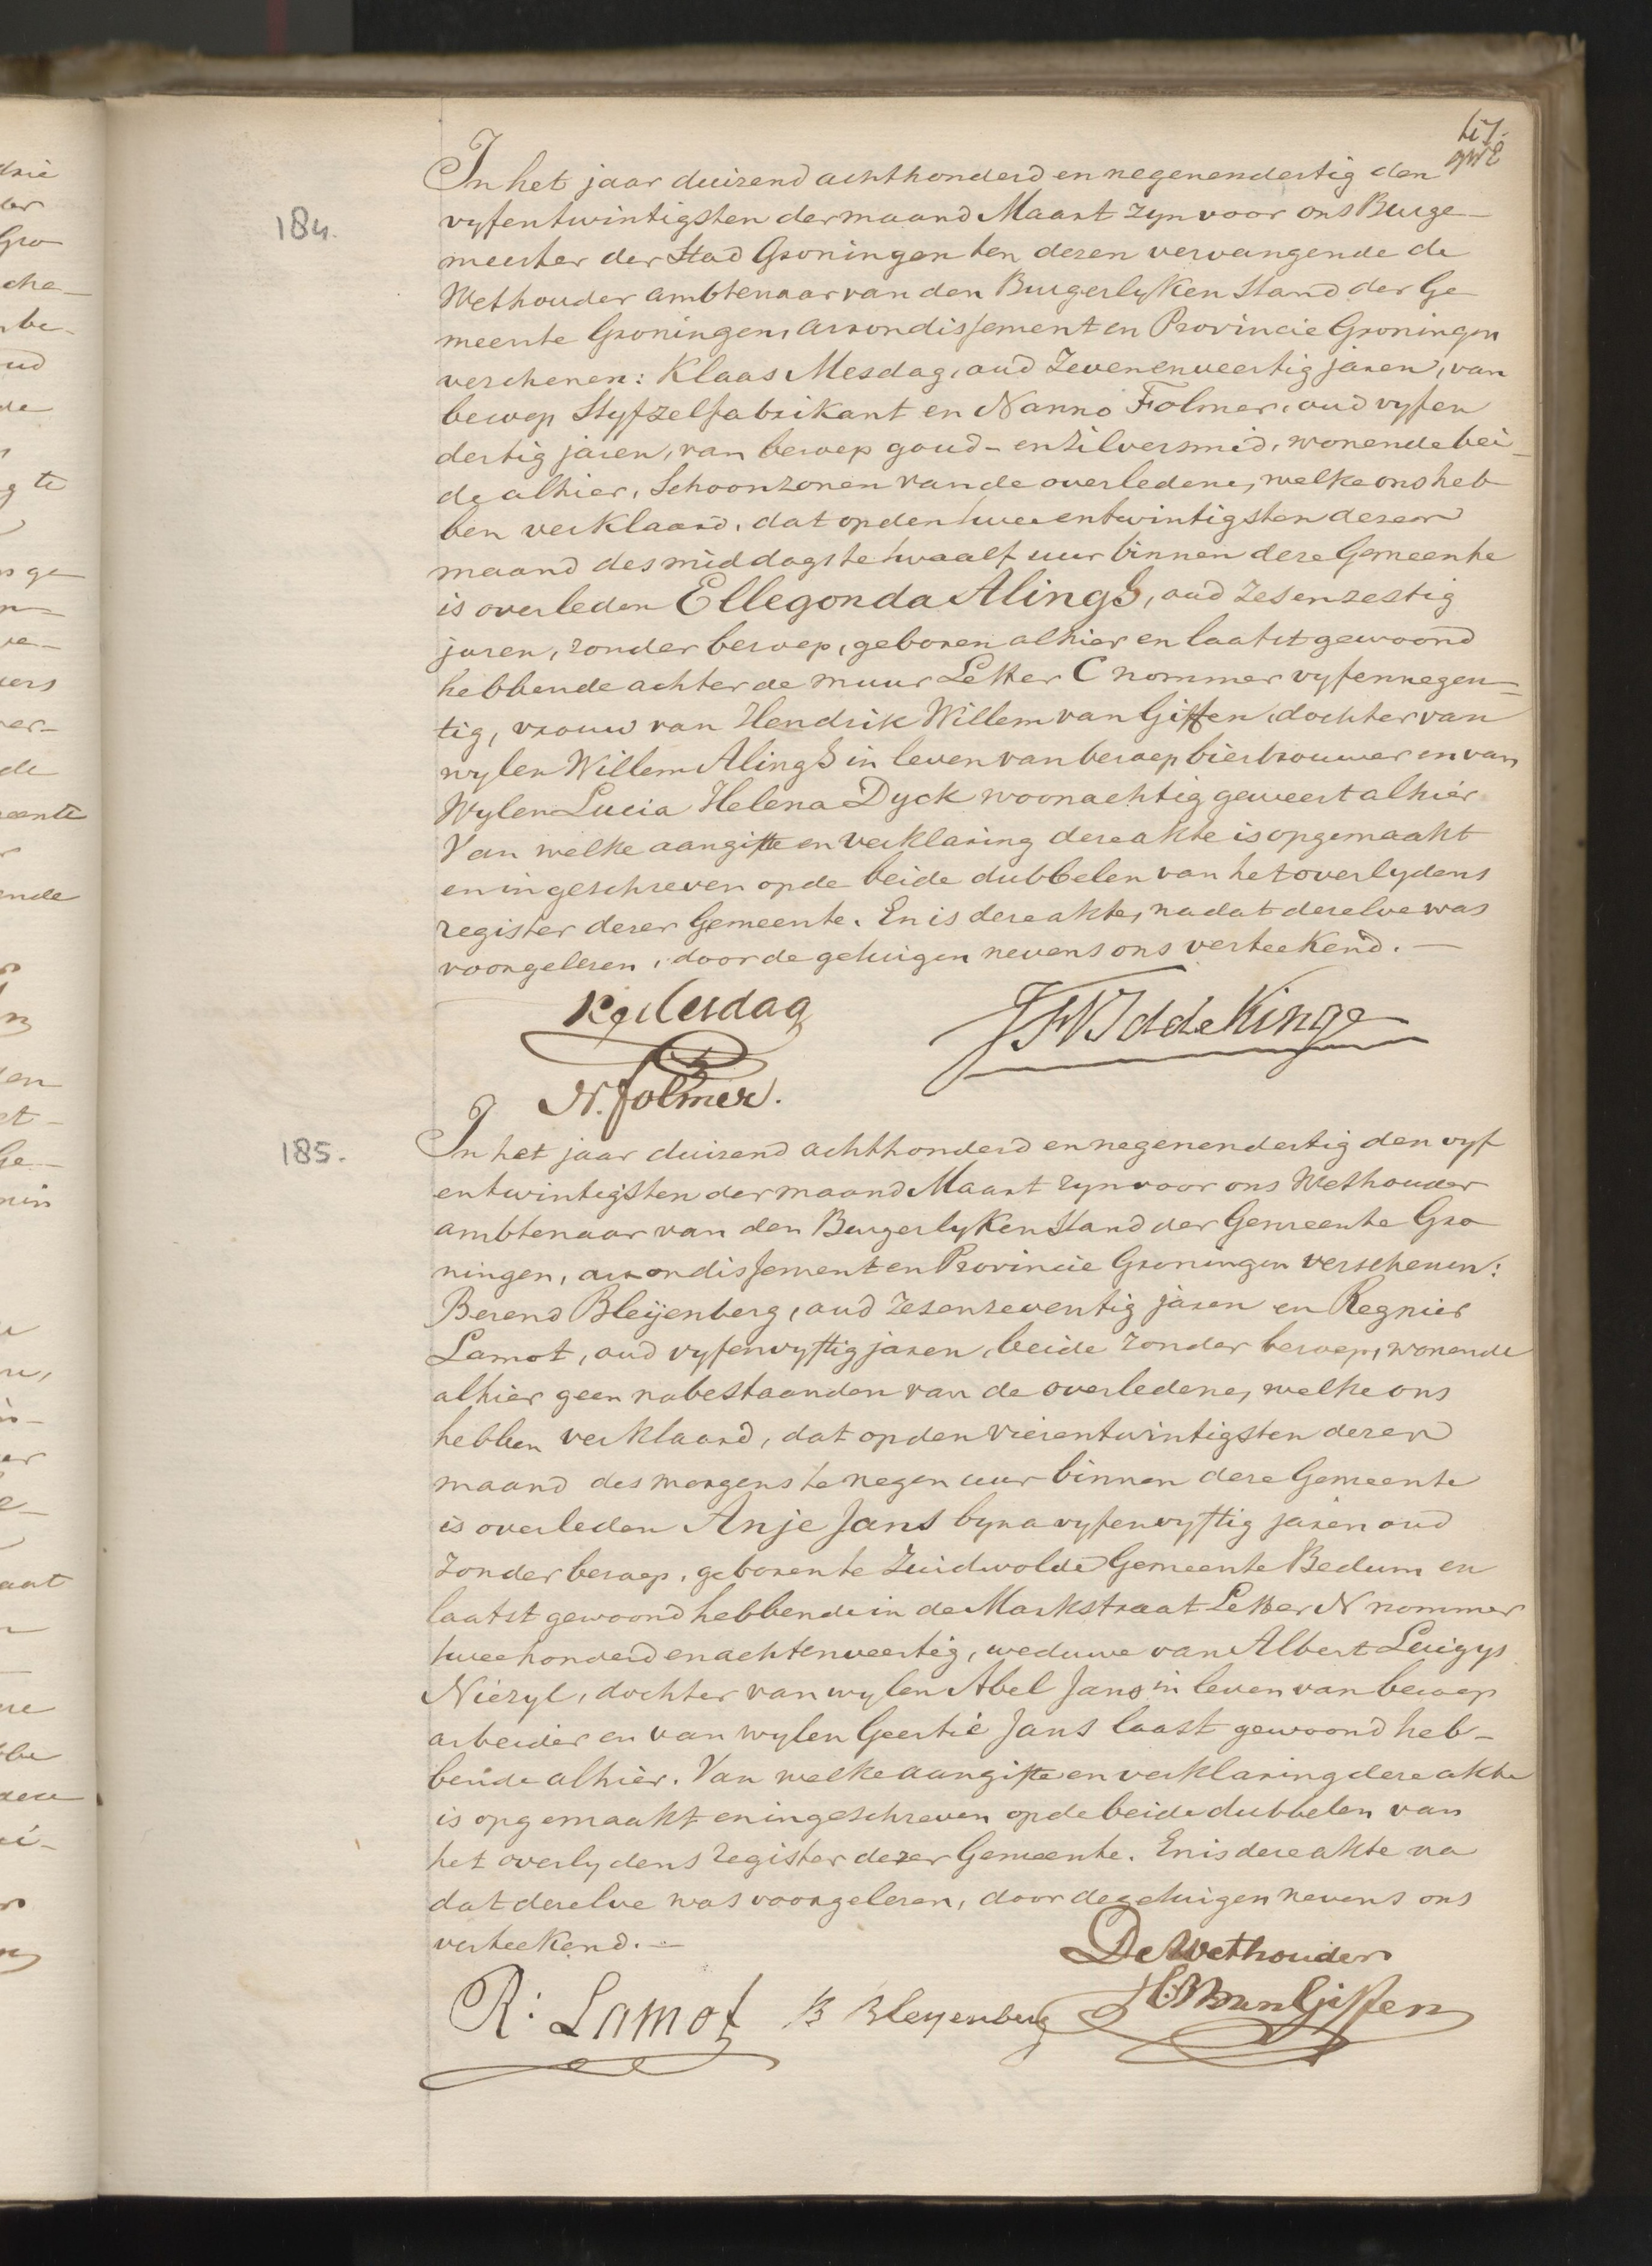 184.
In het jaar duizend achthonderd en negenendertig den
vyfentwintigsten der maand Maart zyn voor ons Burge-
meester der Stad Groningen ten dezen vervangende de
Wethouder ambtenaar van den Burgerlyken Stand der Ge-
meente Groningen, arrondissement en Provincie Groningen
verschenen: Klaas Mesdag, oud Zevenenveertig jaren, van
beroep Styfzelfabrikant en Nanno Folmer, oud vyfen
dertig jaren, van beroep goud- en Zilversmid, wonende bei-
de alhier, Schoonzonen van de overledene, welke ons heb-
ben verklaard, dat op den tweeentwintigsten dezer
maand des middags te twaalf uur binnen deze Gemeente
is overleden Ellegonda Alings, oud Zesenzestig
jaren, zonder beroep, geboren alhier en laatst gewoond
hebbende achter de muur Letter C nommer vyfennegen-
tig, vrouw van Hendrik Willem van Giffen, dochter van
wylen Willem Alings in leven van beroep bierbrouwer en van
Wylen Lucia Helena Dyck woonachtig geweest alhier
Van welke aangifte en verklaring deze akte is opgemaakt
en ingeschreven op de beide dubbelen van het overlydens
register dezer Gemeente. En is deze akte, nadat dezelve was
voorgelezen, door de getuigen nevens ons verteekend. —
K. Mesdag
N. Folmer.
185.
In het jaar duizend achthonderd en negenendertig den vyf
entwintigsten der maand Maart zyn voor ons Wethouder
ambtenaar van den Burgerlyken Stand der Gemeente Gro
ningen, arrondissement en Provincie Groningen verschenen:
Berend Bleijenberg, oud Zesenzeventig jaren en Regnier
Lamot, oud vyfenvyftig jaren, beide Zonder beroep, wonende
alhier geen nabestaanden van de overledene, welke ons
hebben verklaard, dat op den vierentwintigsten dezer
maand des morgens te negen uur binnen deze Gemeente
is overleden Anje Jans byna vyfenvyftig jaren oud
Zonder beroep, geboren te Zuidwolde Gemeente Bedum en
laatst gewoond hebbende in de Markstraat Letter N nommer
tweehonderd en achtenveertig, weduwe van Albert Luigys
Niezyl, dochter van wylen Abel Jans in leven van beroep
arbeider en van wylen Geertie Jans laast gewoond heb-
bende alhier. Van welke aangifte en verklaring deze akte
is opgemaakt en ingeschreven op de beide dubbelen van
het overlydens register dezer Gemeente. En is deze akte na
dat dezelve was voorgelezen, door de getuigen nevens ons
verteekend. —
De Wethouder
R: Lamot B Bleyenberg HW van Giffen